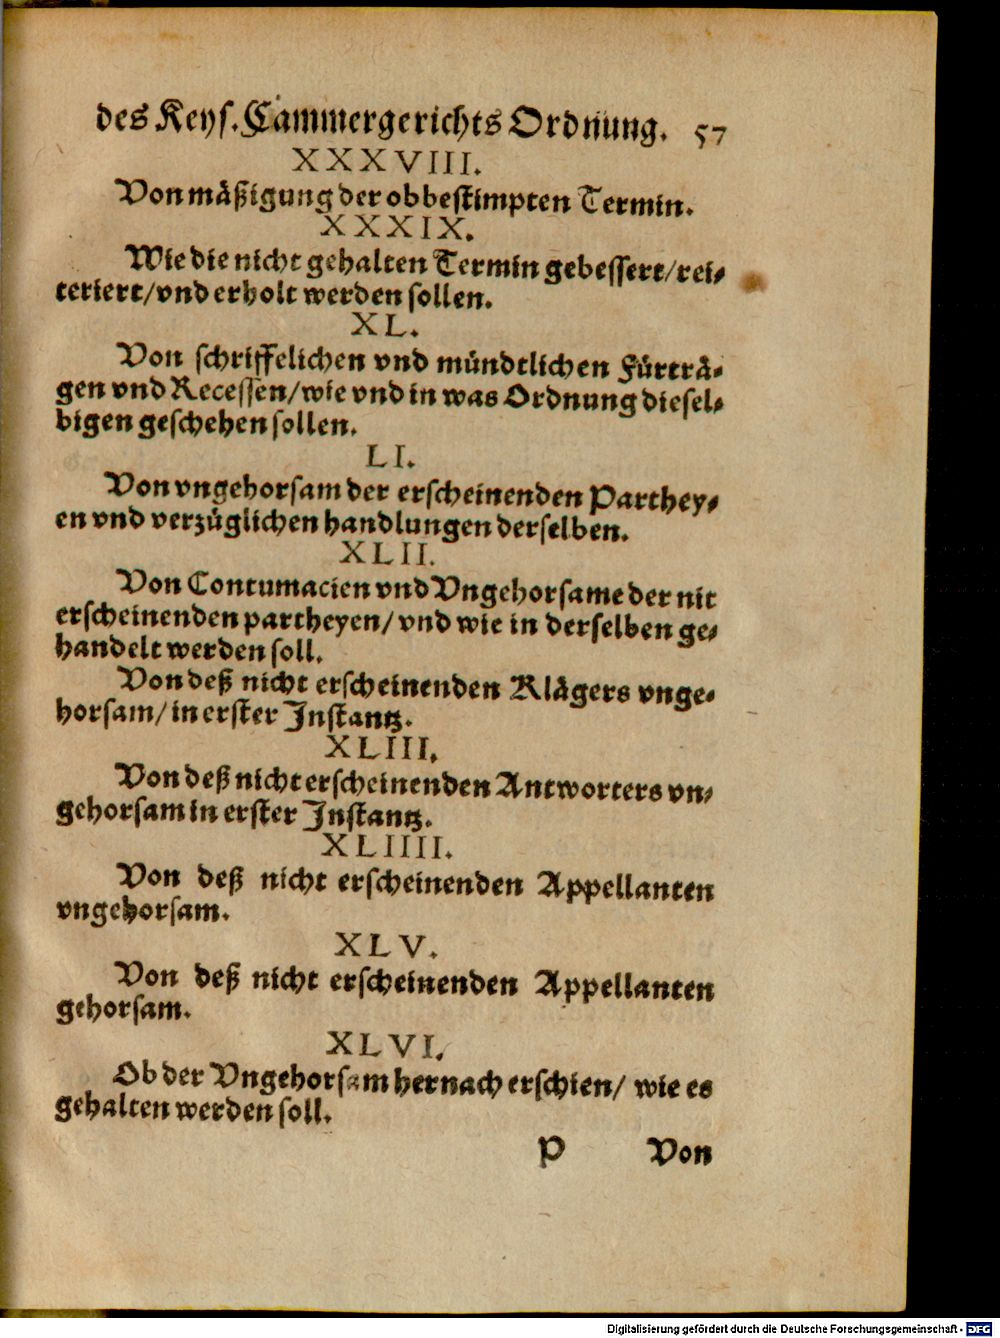 des Keys. Cammergerichts Ordnung. 57
XXXVIII.
Von mäßigung der obbestimpten Termin.
XXXIX.
Wie die nicht gehalten Termin gebessert/rei-
teriert/vnd erholt werden sollen.
XL.
Von schrifftlichen vnd mündtlichen Fürträ-
gen vnd Recessen/wie vnd in was Ordnung diesel-
bigen geschehen sollen.
LI.
Von vngehorsam der erscheinenden Parthey-
en vnd verzüglichen handlungen derselben.
XLII.
Von Contumacien vnd Vngehorsame der nit
erscheinenden partheyen/ vnd wie in derselben ge-
handelt werden soll.
Von deß nicht erscheinenden Klägers vnge-
horsam/ in erster Instantz.
XLIII.
Von deß nicht erscheinenden Antworters vn-
gehorsam in erster Instantz.
XLIIII.
Von deß nicht erscheinenden Appellanten
vngehorsam.
XLV.
Von deß nicht erscheinenden Appellanten
gehorsam.
XLVI.
Ob der Vngehorsam hernach erschien/ wie es
gehalten werden soll.
P Von
Digitalisierung gefördert durch die Deutsche Forschungsgemeinschaft - DFG